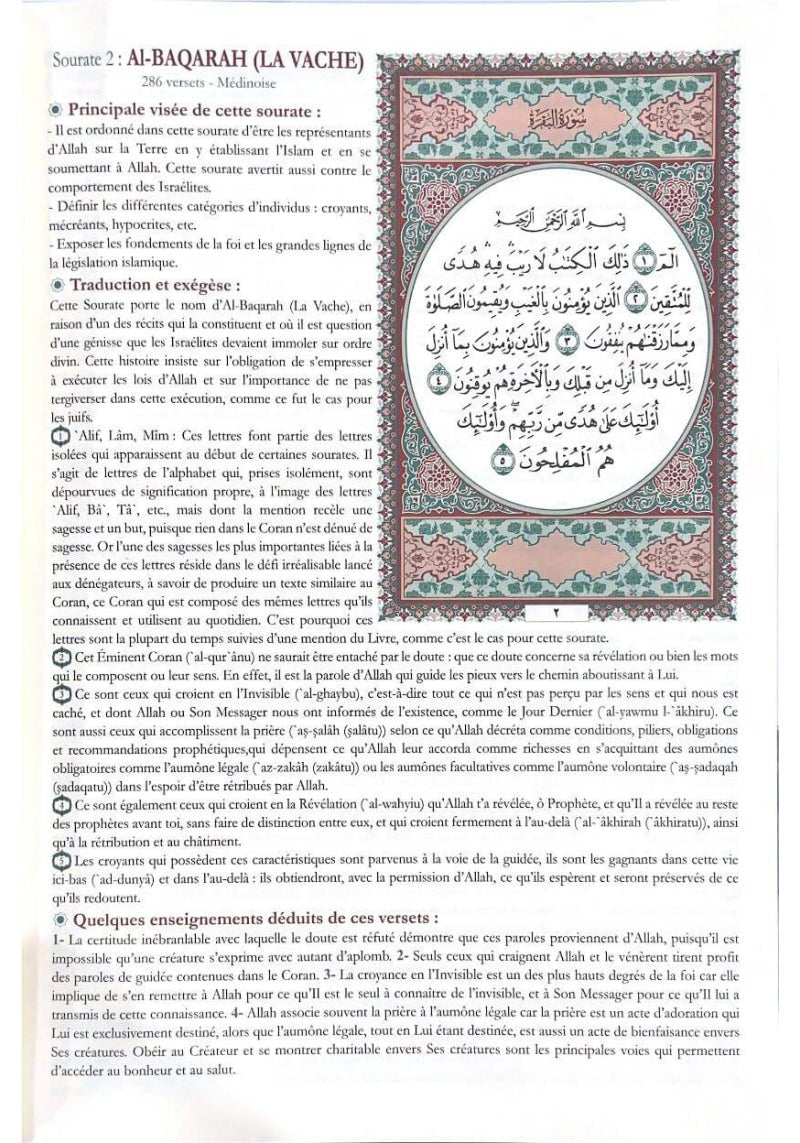 Sourate 2 : Al-BAQARAH (LA VACHE)
286 versets - Médinoise
Principale visée de cette sourate :
- Il est ordonné dans cette sourate d'être les représentants
d'Allah sur la Terre en y établissant l'Islam et en se
soumettant à Allah. Cette sourate avertit aussi contre le
comportement des Israélites.
- Définir les différentes catégories d'individus : croyants,
mécréants, hypocrites, etc.
- Exposer les fondements de la foi et les grandes lignes de
la législation islamique.
Traduction et exégèse :
Cette Sourate porte le nom d'Al-Baqarah (La Vache), en
raison d'un des récits qui la constituent et où il est question
d'une génisse que les Israélites devaient immoler sur ordre
divin. Cette histoire insiste sur l'obligation de s'empresser
à exécuter les lois d'Allah et sur l'importance de ne pas
tergiverser dans cette exécution, comme ce fut le cas pour
les juifs.
1 `Alif, Lâm, Mîm : Ces lettres font partie des lettres
isolées qui apparaissent au début de certaines sourates. Il
s'agit de lettres de l'alphabet qui, prises isolément, sont
dépourvues de signification propre, à l'image des lettres
`Alif, Bâ`, Tâ`, etc., mais dont la mention recèle une
sagesse et un but, puisque rien dans le Coran n'est dénué de
sagesse. Or l'une des sagesses les plus importantes liées à la
présence de ces lettres réside dans le défi irréalisable lancé
aux dénégateurs, à savoir de produire un texte similaire au
Coran, ce Coran qui est composé des mêmes lettres qu'ils
connaissent et utilisent au quotidien. C'est pourquoi ces
lettres sont la plupart du temps suivies d'une mention du Livre, comme c'est le cas pour cette sourate.
2 Cet Éminent Coran (`al-qur`ânu) ne saurait être entaché par le doute : que ce doute concerne sa révélation ou bien les mots
qui le composent ou leur sens. En effet, il est la parole d'Allah qui guide les pieux vers le chemin aboutissant à Lui.
3 Ce sont ceux qui croient en l'Invisible (`al-ghaybu), c'est-à-dire tout ce qui n'est pas perçu par les sens et qui nous est
caché, et dont Allah ou Son Messager nous ont informés de l'existence, comme le Jour Dernier (`al-yawmu l-`âkhiru). Ce
sont aussi ceux qui accomplissent la prière (`aṣ-ṣalâh (ṣalâtu)) selon ce qu'Allah décréta comme conditions, piliers, obligations
et recommandations prophétiques,qui dépensent ce qu'Allah leur accorda comme richesses en s'acquittant des aumônes
obligatoires comme l'aumône légale (`az-zakâh (zakâtu)) ou les aumônes facultatives comme l'aumône volontaire (`aṣ-ṣadaqah
(ṣadaqatu)) dans l'espoir d'être rétribués par Allah.
4 Ce sont également ceux qui croient en la Révélation (`al-wahyiu) qu'Allah t'a révélée, ô Prophète, et qu'Il a révélée au reste
des prophètes avant toi, sans faire de distinction entre eux, et qui croient fermement à l'au-delà (`al-`âkhirah (`âkhiratu)), ainsi
qu'à la rétribution et au châtiment.
5 Les croyants qui possèdent ces caractéristiques sont parvenus à la voie de la guidée, ils sont les gagnants dans cette vie
ici-bas (`ad-dunyâ) et dans l'au-delà : ils obtiendront, avec la permission d'Allah, ce qu'ils espèrent et seront préservés de ce
qu'ils redoutent.
Quelques enseignements déduits de ces versets :
1- La certitude inébranlable avec laquelle le doute est réfuté démontre que ces paroles proviennent d'Allah, puisqu'il est
impossible qu'une créature s'exprime avec autant d'aplomb. 2- Seuls ceux qui craignent Allah et le vénèrent tirent profit
des paroles de guidée contenues dans le Coran. 3- La croyance en l'Invisible est un des plus hauts degrés de la foi car elle
implique de s'en remettre à Allah pour ce qu'Il est le seul à connaître de l'invisible, et à Son Messager pour ce qu'Il lui a
transmis de cette connaissance. 4- Allah associe souvent la prière à l'aumône légale car la prière est un acte d'adoration qui
Lui est exclusivement destiné, alors que l'aumône légale, tout en Lui étant destinée, est aussi un acte de bienfaisance envers
Ses créatures. Obéir au Créateur et se montrer charitable envers Ses créatures sont les principales voies qui permettent
d'accéder au bonheur et au salut.
سُورَةُ البَقَرَةِ
بِسْمِ اللَّهِ الرَّحْمَٰنِ الرَّحِيمِ
الٓمٓ ١ ذَٰلِكَ الْكِتَٰبُ لَا رَيْبَ ۛ فِيهِ ۛ هُدًى
لِّلْمُتَّقِينَ ٢ الَّذِينَ يُؤْمِنُونَ بِالْغَيْبِ وَيُقِيمُونَ الصَّلَوٰةَ
وَمِمَّا رَزَقْنَٰهُمْ يُنفِقُونَ ٣ وَالَّذِينَ يُؤْمِنُونَ بِمَآ أُنزِلَ
إِلَيْكَ وَمَآ أُنزِلَ مِن قَبْلِكَ وَبِالْآخِرَةِ هُمْ يُوقِنُونَ ٤
أُولَٰٓئِكَ عَلَىٰ هُدًى مِّن رَّبِّهِمْ ۖ وَأُولَٰٓئِكَ
هُمُ الْمُفْلِحُونَ ٥
٢